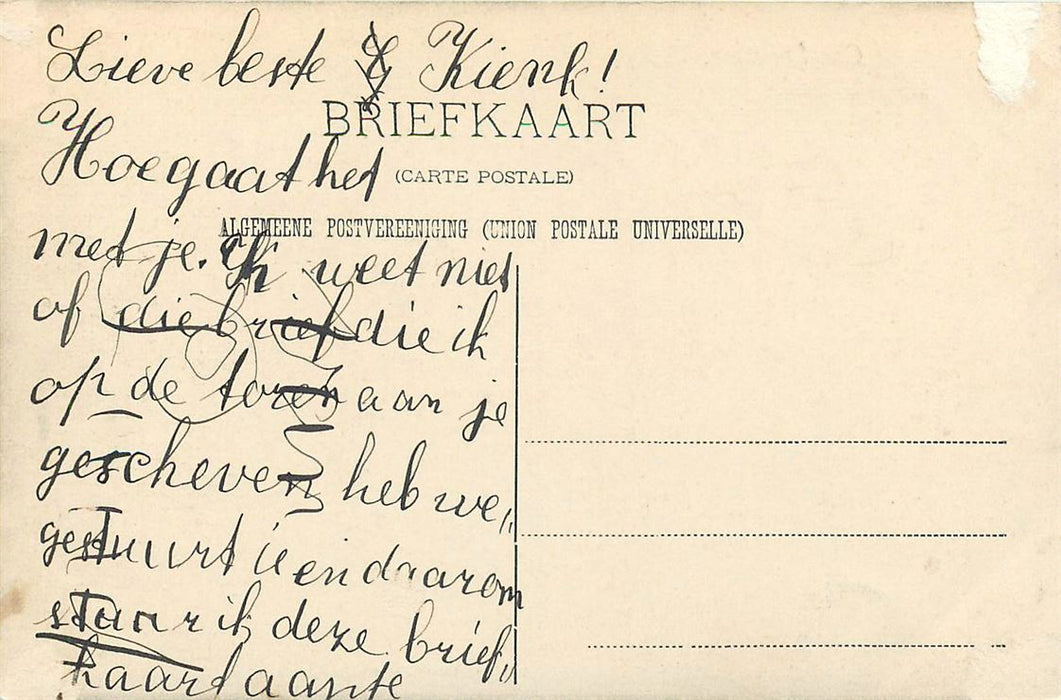 Lieve beste Kienk!
BRIEFKAART
Hoe gaat het
(CARTE POSTALE)
ALGEMEENE POSTVEREENIGING (UNION POSTALE UNIVERSELLE)
met je. Ik weet niet
of die brief die ik
op de toren aan je
gescheven heb we„
gestuurt is en daarom
stuur ik deze brief„
kaart aan te